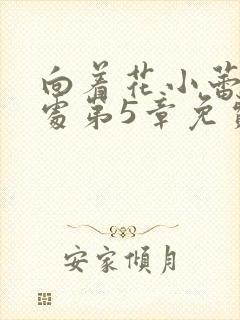 向着花小蕾
处第5章免费
安家倾月